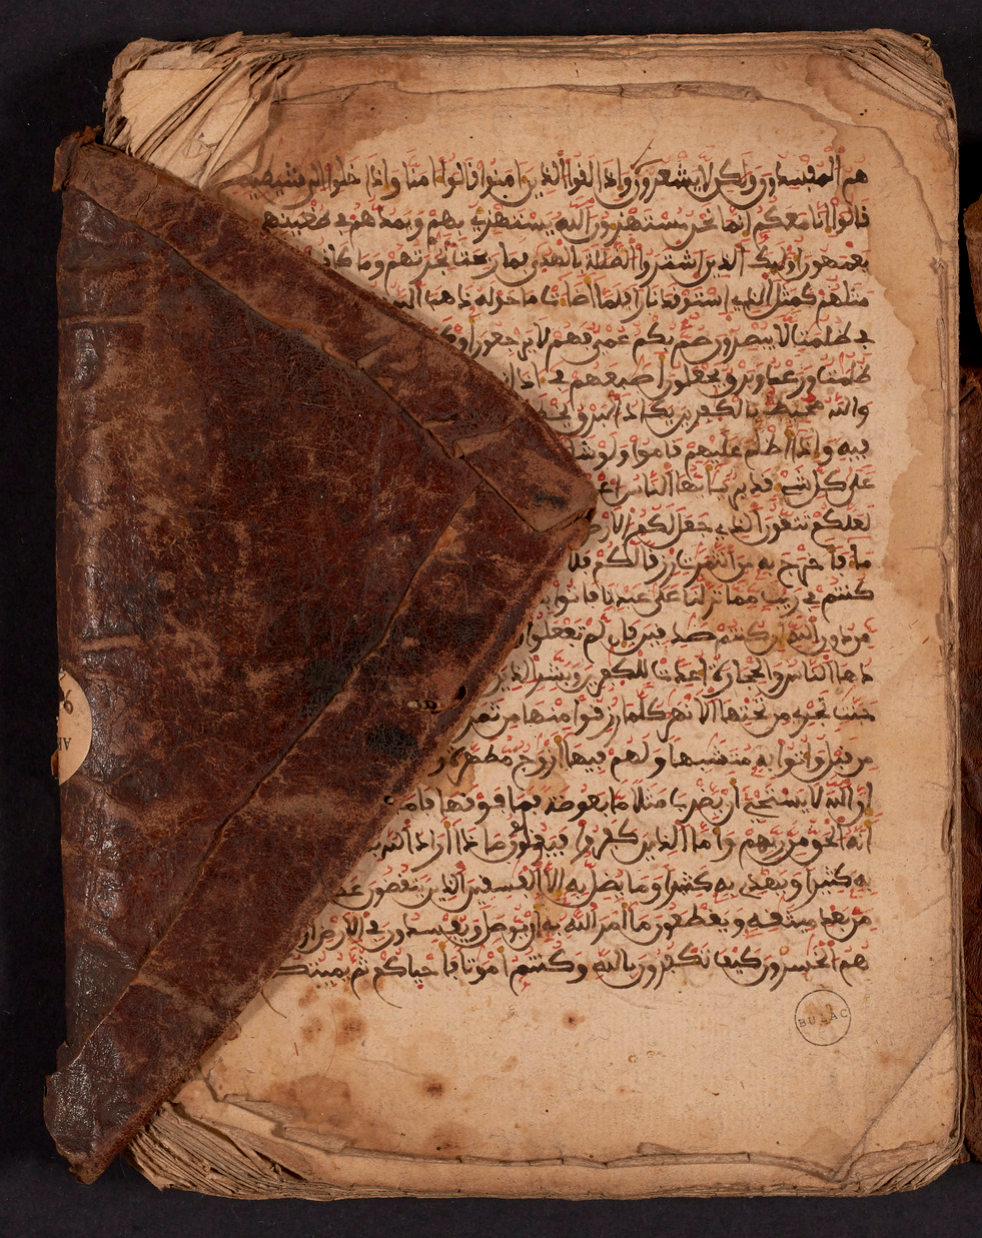 هم المفسدون ولكن لا يشعرون واذا لقوا الذين امنوا قالوا امنا واذا خلوا الى شيطينهم
قالوا انا معكم انما نحن مستهزون الله يستهزئ بهم ويمدهم في طغينهم
يعمهون اوليك الذين اشتروا الضللة بالهدى فما ربحت تجرتهم وما كانوا
مثلهم كمثل الذي استوقد نارا فلما اضات ما حوله ذهب الله
في ظلمت لا يبصرون صم بكم عمي فهم لا يرجعون او
ظلمت ورعد وبرق يجعلون اصبعهم في اذا
والله محيط بالكفرين يكاد البرق يخ
فيه واذا اظلم عليهم قاموا ولو شا
على كل شي قدير يايها الناس اع
لعلكم تتقون الذي جعل لكم الارض
ما فاخرج به من الثمرت رزقا لكم فلا
كنتم في ريب مما نزلنا على عبدنا فاتوا ب
من دون الله ان كنتم صدقين فان لم تفعلوا
دها الناس والحجارة اعدت للكفرين وبشر الذين
جنت تجري من تحتها الانهر كلما رزقوا منها من ثمر
من قبل واتوا به متشبها ولهم فيها ازوج مطهرة و
ان الله لا يستحي ان يضرب مثلا ما بعوضة فما فوقها فاما
انه الحق من ربهم واما الذين كفروا فيقولون ماذا اراد الله ب
به كثيرا ويهدي به كثيرا وما يضل به الا الفسقين الذين ينقضون عهد
من بعد ميثقه ويقطعون ما امر الله به ان يوصل ويفسدون في الارض او
هم الخسرون كيف تكفرون بالله وكنتم اموتا فاحيكم ثم يميتكم
BULAC